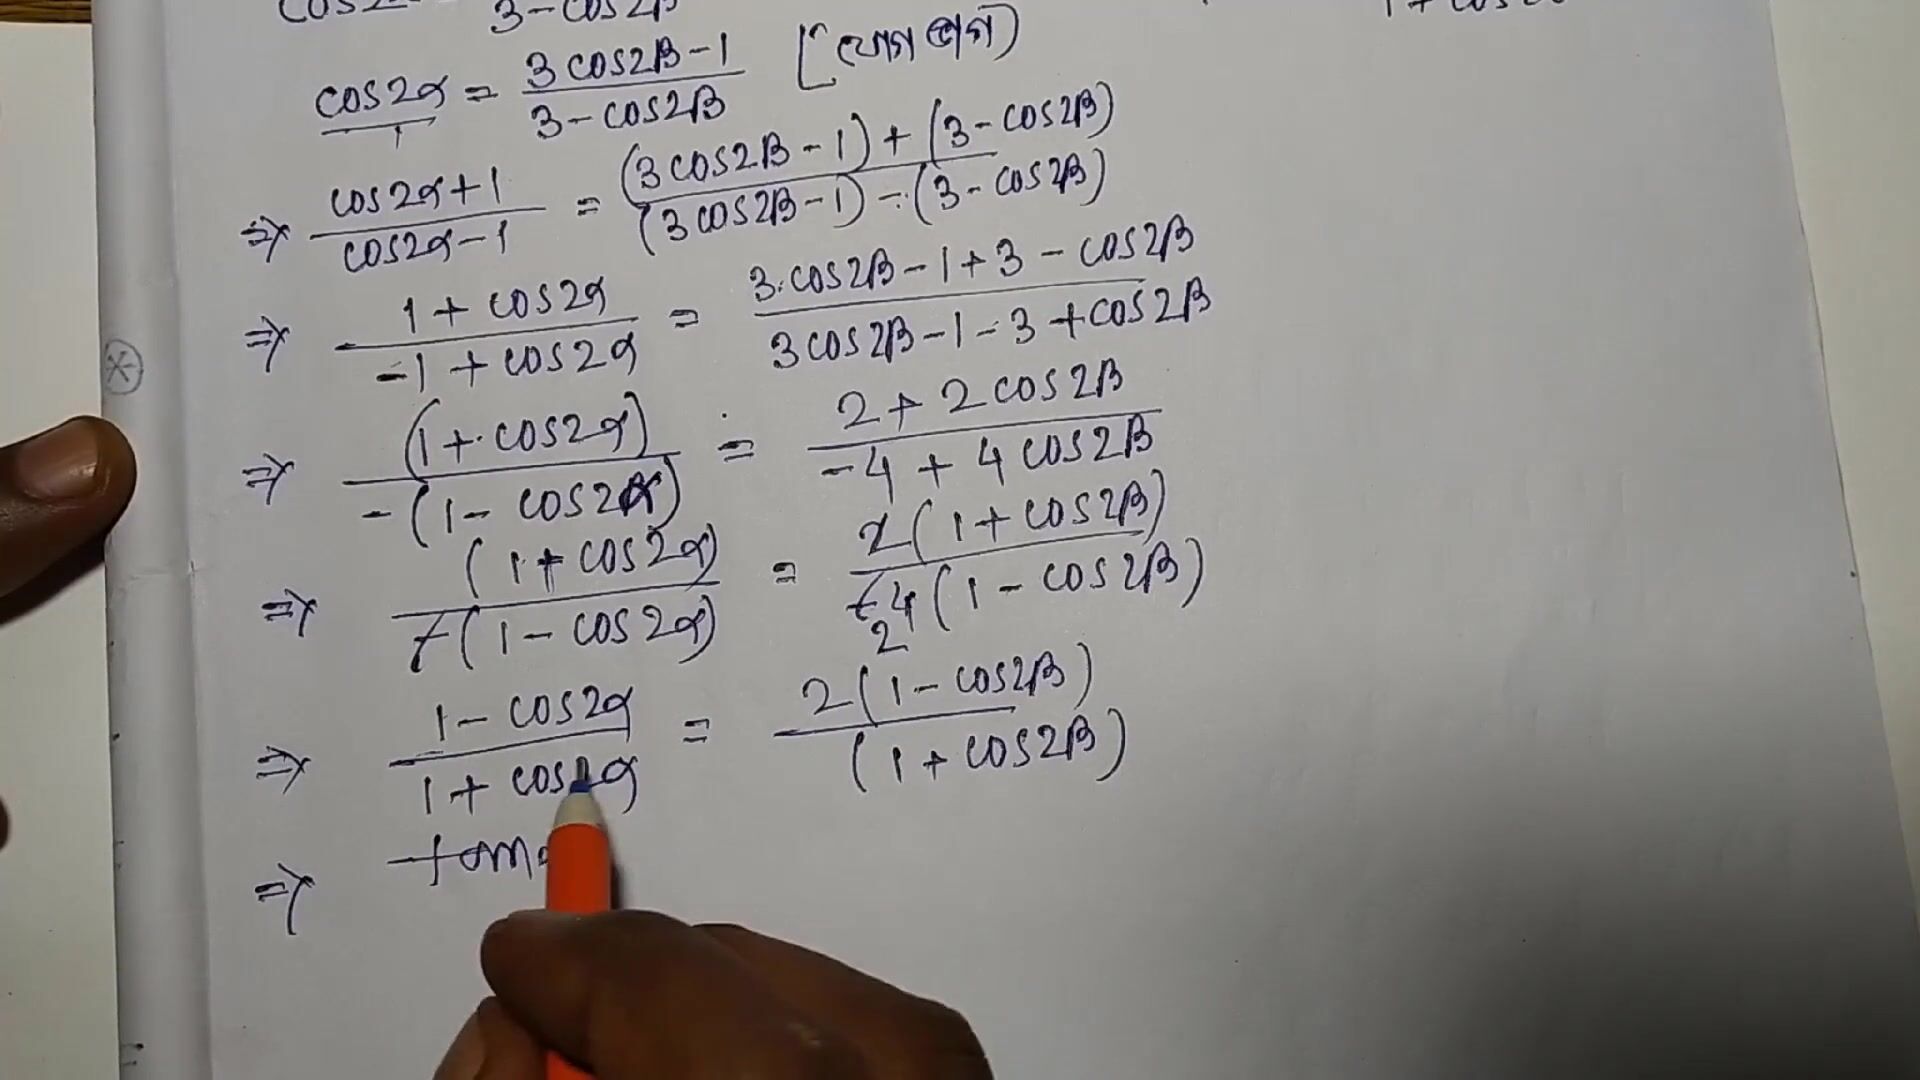 3-cos2β
cos2α = (3cos2β-1)/(3-cos2β)
⇒ (cos2α+1)/(cos2α-1) = ((3cos2β-1)+(3-cos2β))/((3cos2β-1)-(3-cos2β))
⇒ (1+cos2α)/(-1+cos2α) = (3.cos2β-1+3-cos2β)/(3cos2β-1-3+cos2β)
⇒ (1+cos2α)/-(1-cos2α) = (2+2cos2β)/(-4+4cos2β)
⇒ (1+cos2α)/-(1-cos2α) = 2(1+cos2β)/-4(1-cos2β)
2
⇒ (1-cos2α)/(1+cos2α) = 2(1-cos2β)/(1+cos2β)
⇒ tan